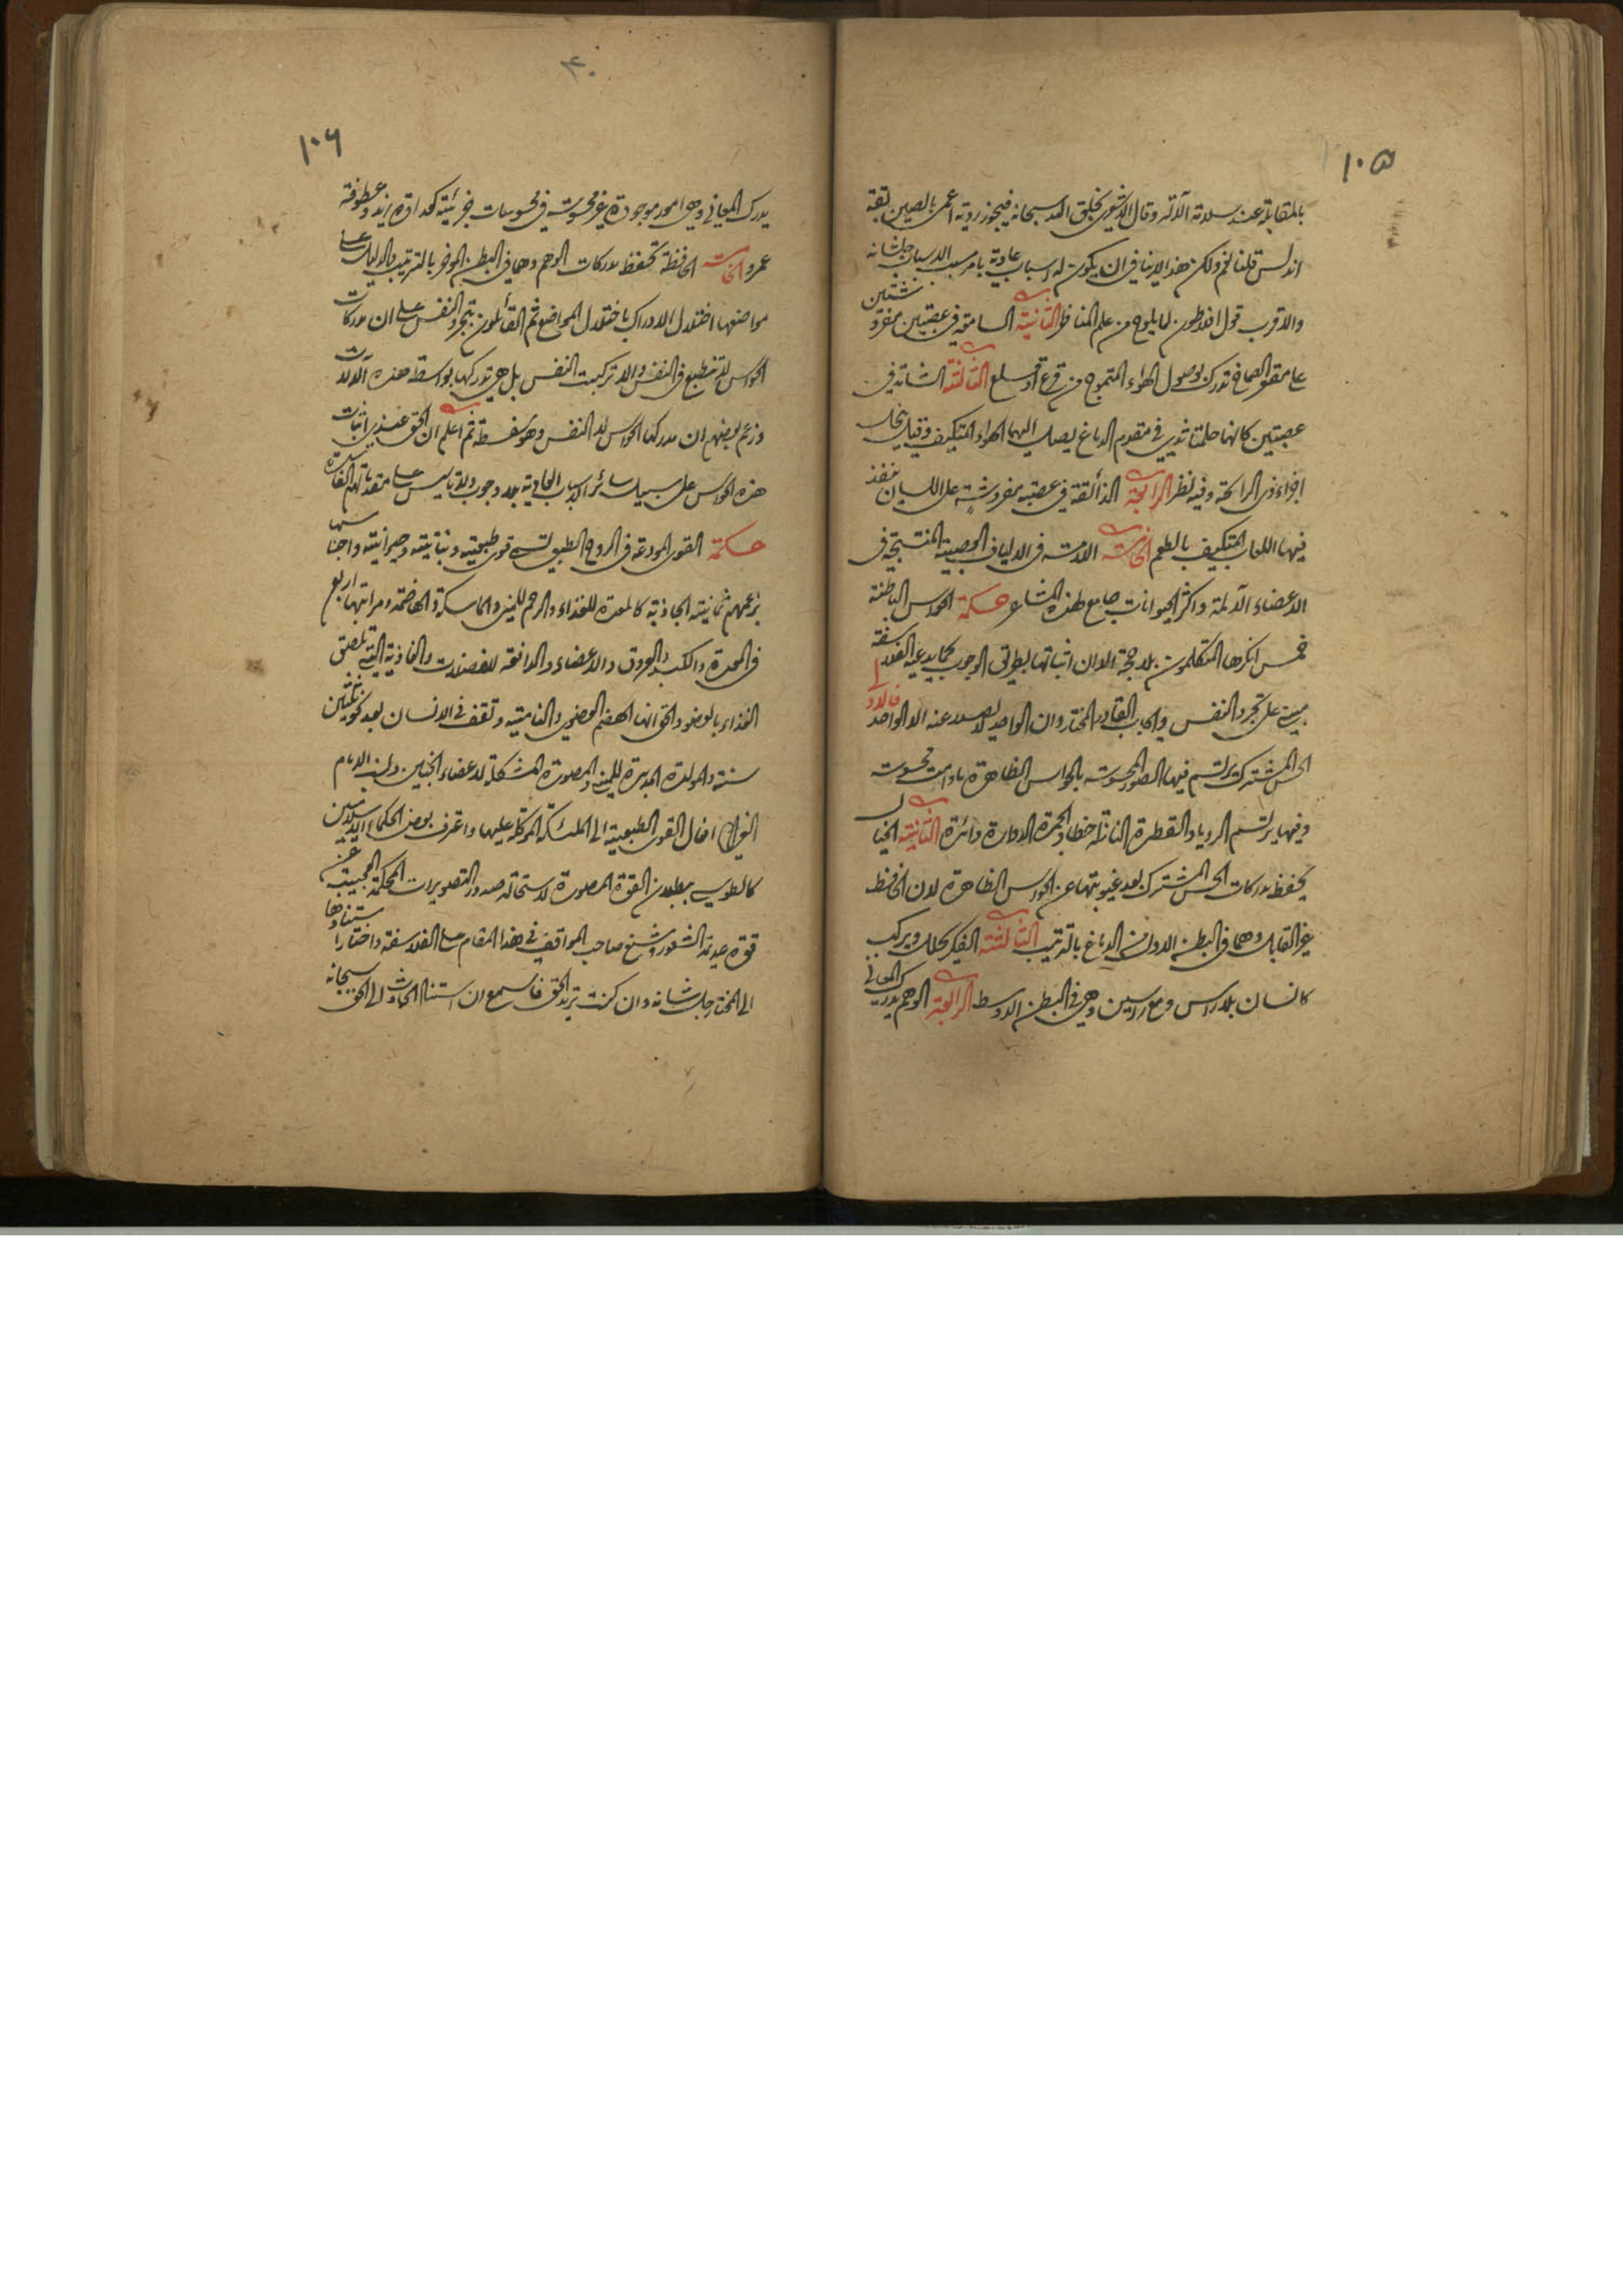 ١٠٥
بالمقابلة عند سلامة الآلة وقال الاشعرى بخلق الله سبحانه فيجوز روية اعمى بالصين بقة
اندلس قلنا نعم ولكن هذا لا ينافى ان يكون له اسباب عادية بامر مسبب الاسباب جل شانه
والاقرب قول افلاطون لما يلوح من علم المناظر الثانية السامعة فى عصبتين مفروشتين
على مقعر الصماخ تدرك بوصول الهواء المتموج من قرع او قلع الثالثة الشامة فى
عصبتين كانهما حلمتا ثدى فى مقدم الدماغ يصل اليهما الهواء المتكيف وقيل ينحل
اجزاء ذى الرائحة وفيه نظر الرابعة الذائقة فى عصبة مفروشة على اللسان ينفذ
فيها اللعاب المتكيف بالطعم الخامسة اللامسة فى الالياف العصبية المنتسجة فى
الاعضاء الآلمة واكثر الحيوانات جامع لهذه المشاعر حكمة الحواس الباطنة
خمس انكرها المتكلمون بلا حجة الا ان اثباتها بطريق الوجوب كما يدعيه الفلاسفة
مبنى على تجرد النفس وايجاب القادر المختار وان الواحد لا يصدر عنه الا الواحد فالاولى
الحس المشترك يرتسم فيها الصور المحسوسة بالحواس الظاهرة ما دامت محسوسة
وفيها يرتسم الرويا والقطرة النازلة خطا والجمرة الدوارة دائرة الثانية الخيال
يحفظ مدركات الحس المشترك بعد غيبوبتها عن الحواس الظاهرة لان الحافظ
غير القابل وهما فى البطن الاول من الدماغ بالترتيب الثالثة الفكر يحلل ويركب
كانسان بلا راس ومع راسين وهى فى البطن الاوسط الرابعة الوهم يدرك المعانى
١٠٦
يدرك المعانى وهى امور موجودة غير محسوسة فى محسوسات جزئية كعداوة زيد وعطوفة
عمرو الخامسة الحافظة تحفظ مدركات الوهم وهما فى البطن الموخر بالترتيب والدليل على
مواضعها اختلال الادراك باختلال المواضع ثم القائلون بتجرد النفس على ان مدركات
الحواس لا تنطبع فى النفس والا تركبت النفس بل هى تدركها بواسطة هذه الآلات
وزعم بعضهم ان مدركها الحواس لا النفس وهو سفسطة ثم اعلم ان الحق عندى اثبات
هذه الحواس على سبيل سائر الاسباب العادية بلا وجوب ولا تاسيس على مقدماتهم الفاسدة
حكمة القوى المودعة فى الروح الطبى تسمى قوى طبيعية ونباتية وحيوانية واجناسها
بزعمهم ثمانية الجاذبة كالمعدة للغذاء والرحم للمنى والماسكة والهاضمة ومراتبها اربع
فى المعدة والكبد والعروق والاعضاء والدافعة للفضلات والغاذية التى تلصق
الغذاء بالعضو والخوانها الهضم العضوى والنامية وتقف فى الانسان بعد نحو ثلثين
سنة والمولدة المدبرة للمنى والمصورة المشكلة لاعضاء الجنين ونسب الامام
الغزالى افعال القوى الطبيعية الى الملئكة الموكلة عليها واعترف بعض الحكماء الاسلاميين
كالطوسى ببطلان القوة المصورة لاستحالة صدور التصويرات المحكمة العجيبة عن
قوة عديمة الشعور وشنع صاحب المواقف فى هذا المقام على الفلاسفة واختار استنادها
الى المختار جل شانه وان كنت تريد الحق فاسمع ان استناد الحوادث الى الحق سبحانه